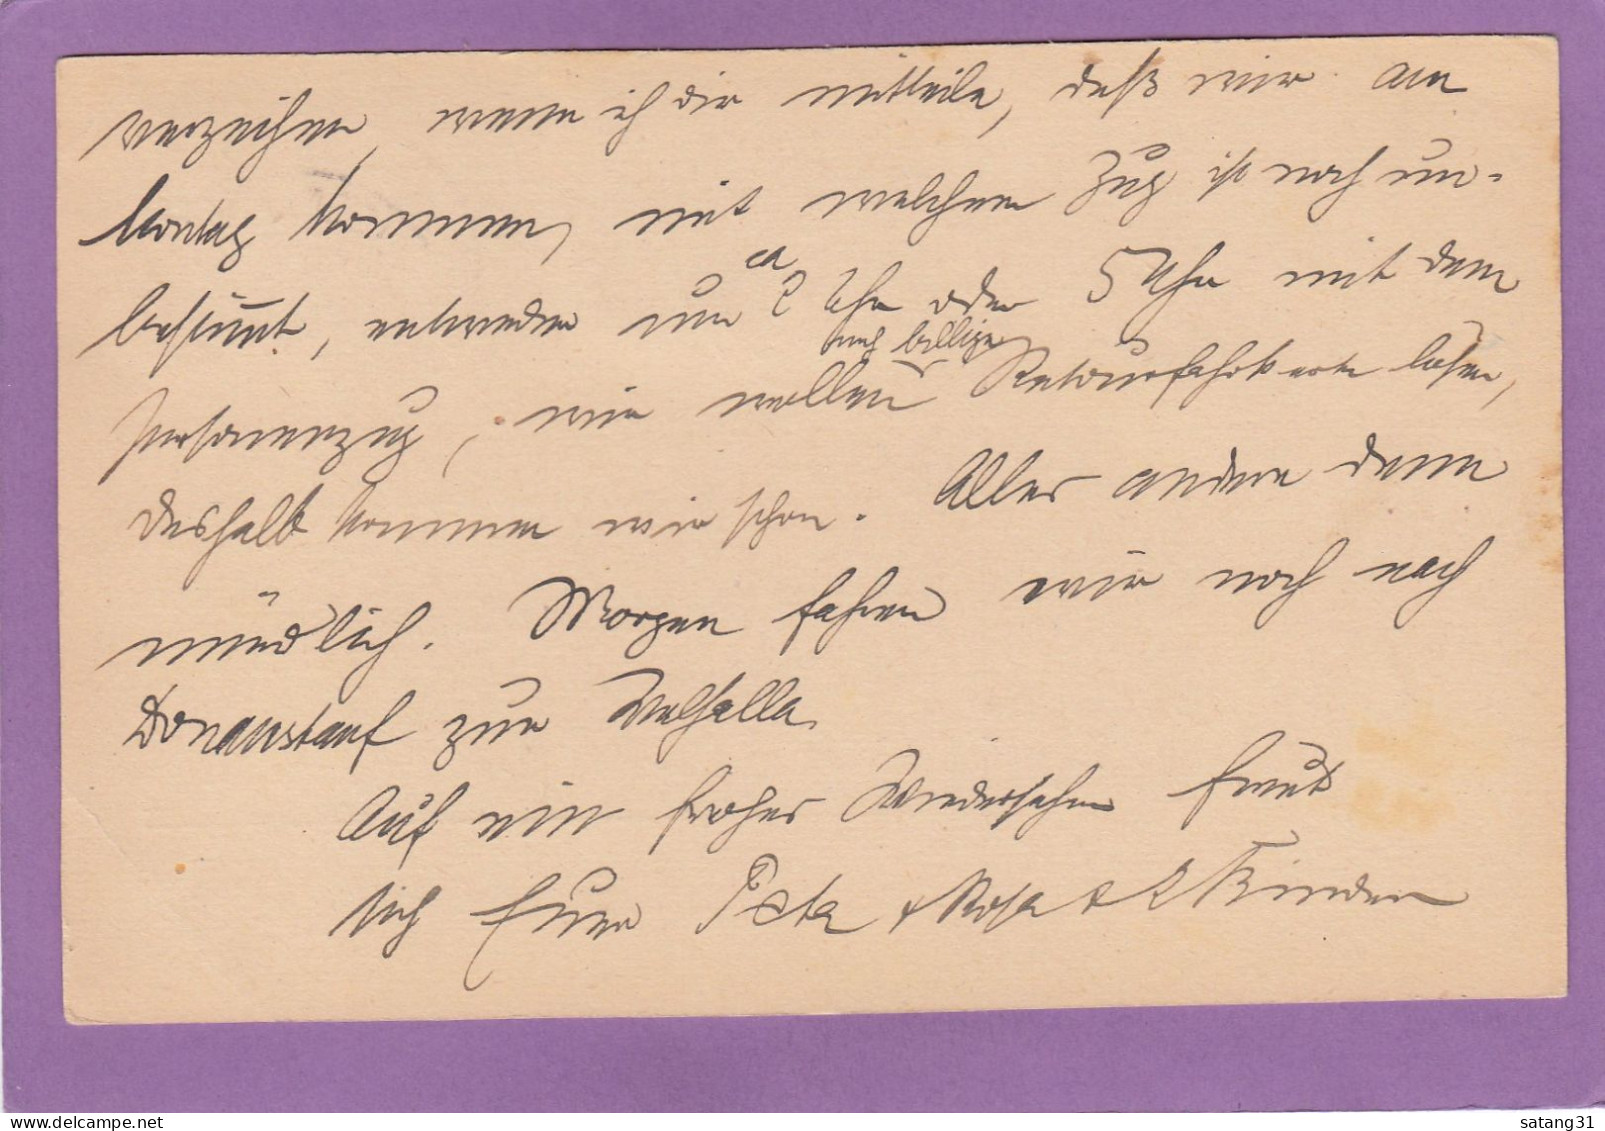 verzeihen, wenn ich dir mitteile, daß wir am
Montag kommen, mit welchem Zug ist noch un-
bestimmt, entweder um ca 2 Uhr oder 5 Uhr mit dem
noch billige
Personenzug, wir wollen Retourfahrkarten lösen,
deshalb kommen wir schon. Alles andere dann
mündlich. Morgen fahren wir noch nach
Donaustauf zur Walhalla.
Auf ein frohes Wiedersehen freut
sich Euer Peter + Rosa + 2 Kinder
satang31